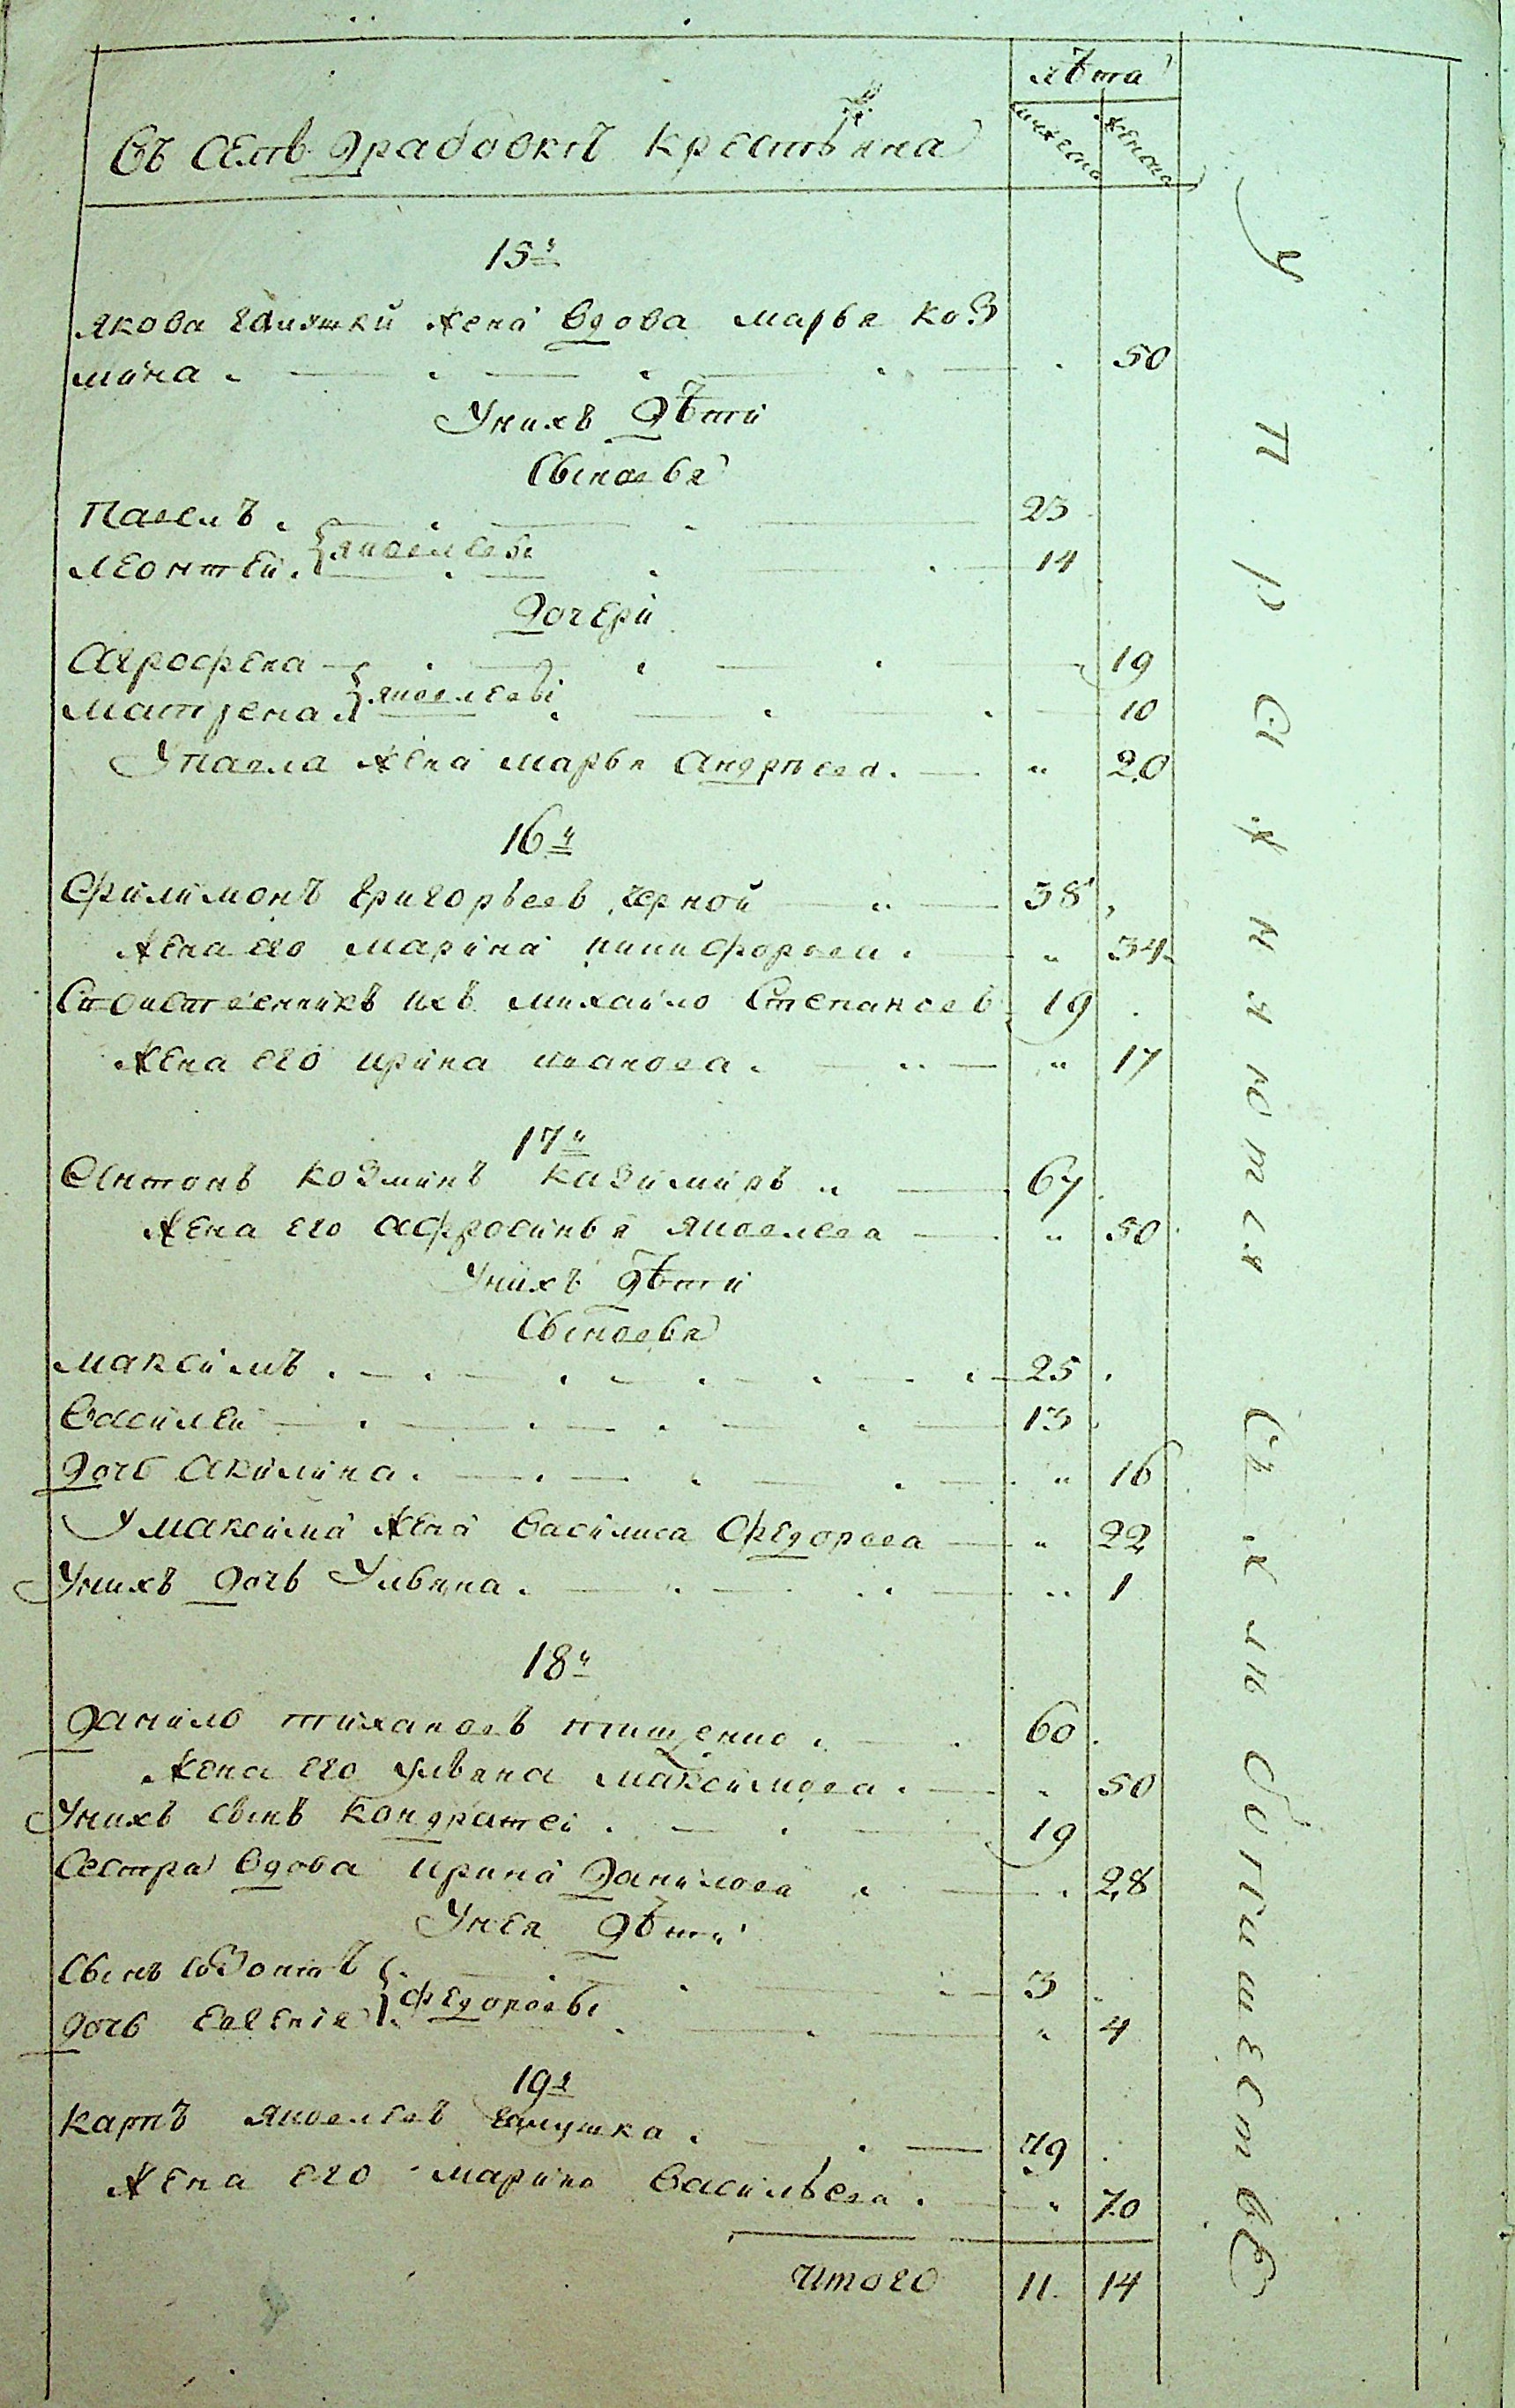 лѣта
Въ селѣ Драбовкѣ крестьяна
мужеска женска
15й
Якова жена вдова Марья Коз
мина 50
У нихъ дѣти
Сыновья
Павелъ 23
Леонтей Яковлевы 14
Дочери
Агрофена 19
Матрена Яковлевы 10
У Павла жена Марья Андрѣева 20
16й
Филимонъ Григорьевъ Черной 38
Жена его Марина Никифорова 34
их Михайло Степановъ 19
Жена его Ирина Иванова 17
17й
Антонъ Козминъ Казимиръ 67
Жена его Афросинья Яковлева 50
У нихъ дѣти
Сыновья
Максимъ 25
Василей 13
Дочь Акилина 16
У Максима жена Василиса Федорова 22
У нихъ дочь Ульяна 1
18й
Данило Тихановъ Тищенко 60
Жена его Ульяна Максимова 50
У нихъ сынъ Кондратей 19
Сестра вдова Ирина Данилова 28
У нея дѣти
Сынъ Созонтъ 3
Дочь Евгения Федоровы 4
19й
Карпъ Яковлевъ Галушка 79
Жена его Марина Васильева 70
Итого 11 14